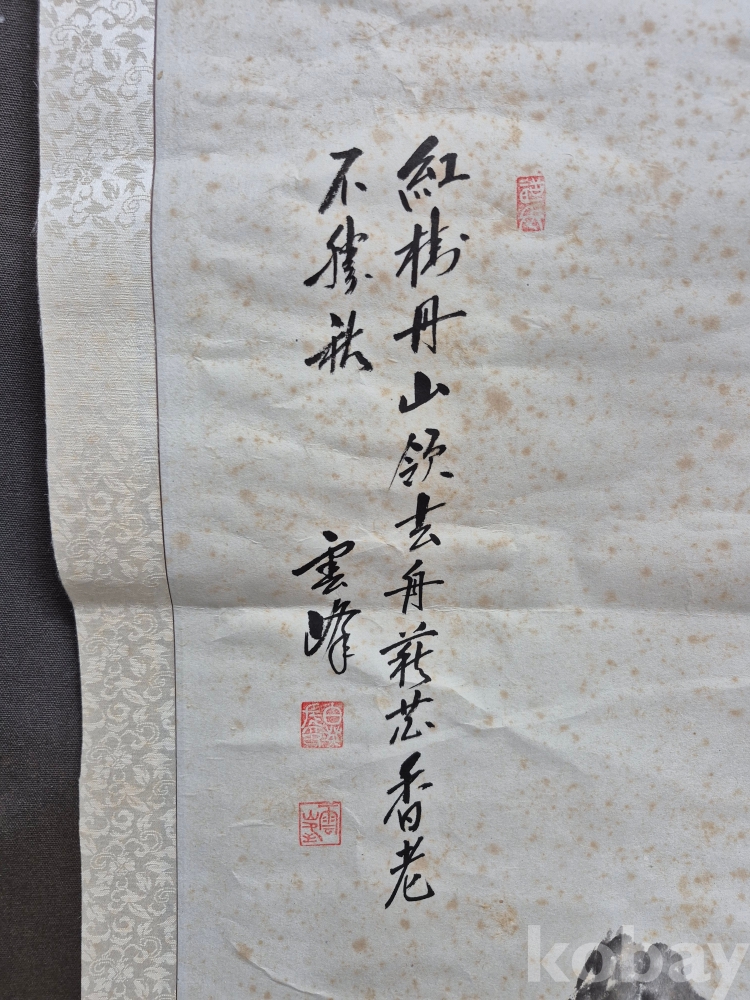 紅樹丹山領去舟蘋花香老
不勝秋
雲峰
雲峯
kobay